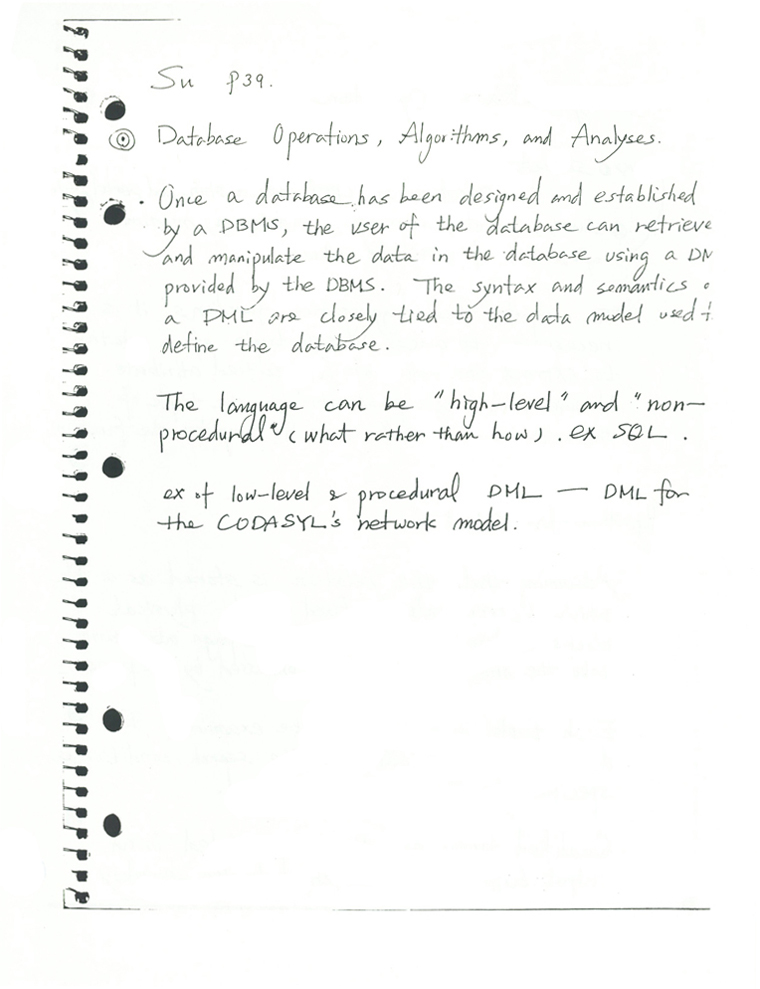 Su p39.
◎ Database Operations, Algorithms, and Analyses.
· Once a database has been designed and established
by a DBMS, the user of the database can retrieve
and manipulate the data in the database using a DM
provided by the DBMS. The syntax and semantics o
a DML are closely tied to the data model used t
define the database.
The language can be "high-level" and "non-
procedural" (what rather than how). ex SQL.
ex of low-level & procedural DML — DML for
the CODASYL's network model.